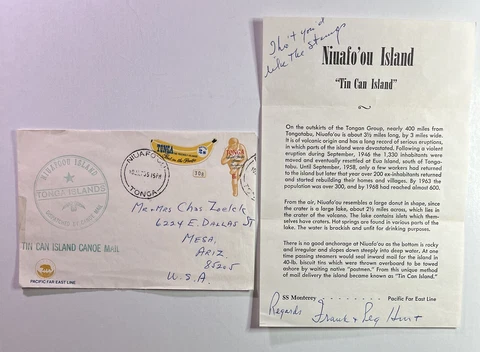 Tho't you'd
like the stamps
Niuafo'ou Island
"Tin Can Island"
On the outskirts of the Tongan Group, nearly 400 miles from
Tongatabu, Niuafo'ou is about 3½ miles long, by 3 miles wide.
It is of volcanic origin and has a long record of serious eruptions,
in which parts of the island were devastated. Following a violent
eruption during September, 1946 the 1,330 inhabitants were
moved and eventually resettled at Eua Island, south of Tonga-
tabu. Until September, 1958, only a few workers had returned to
the island but later that year over 200 ex-inhabitants returned
and started rebuilding their homes and villages. By 1963 the
population was over 300, and by 1968 had reached almost 600.
From the air, Niuafo'ou resembles a large donut in shape, since
the crater is a large lake, about 2½ miles across, which lies in
the crater of the volcano. The lake contains islets which them-
selves have craters. Hot springs are found in various parts of the
lake. The water is brackish and unfit for drinking purposes.
There is no good anchorage at Niuafo'ou as the bottom is rocky
and irregular and slopes down steeply into deep water. At one
time passing steamers would seal inward mail for the island in
40-lb. biscuit tins which were thrown overboard to be towed
ashore by waiting native "postmen." From this unique method
of mail delivery the island became known as "Tin Can Island."
SS Monterey
Pacific Far East Line
Regards Frank & Peg Hunt
NIUAFOOU
TONGA
TONGA
NIUAFOOU ISLAND
TONGA ISLANDS
TIN CAN ISLAND CANOE MAIL
PACIFIC FAR EAST LINE
Mr & Mrs Chas Zoelck
6224 E. Dallas St
Mesa,
Ariz
85205
U.S.A.